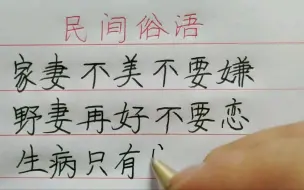 民间俗语
家妻不美不要嫌
野妻再好不要恋
生病只有